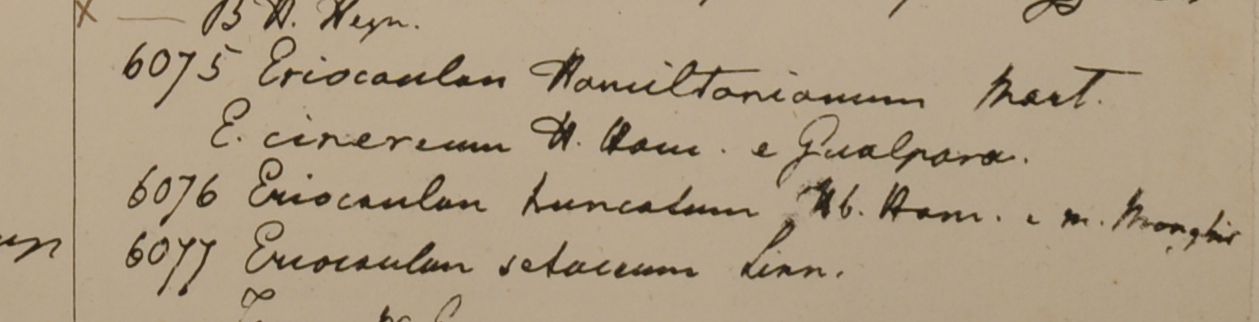 B H. Heyn.
6075 Eriocaulon Hamiltonianum Mart.
E. cinereum H. Ham. e Gualpara.
6076 Eriocaulon truncatum Hb. Ham. e m. Monghir
6077 Eriocaulon setaceum Linn.